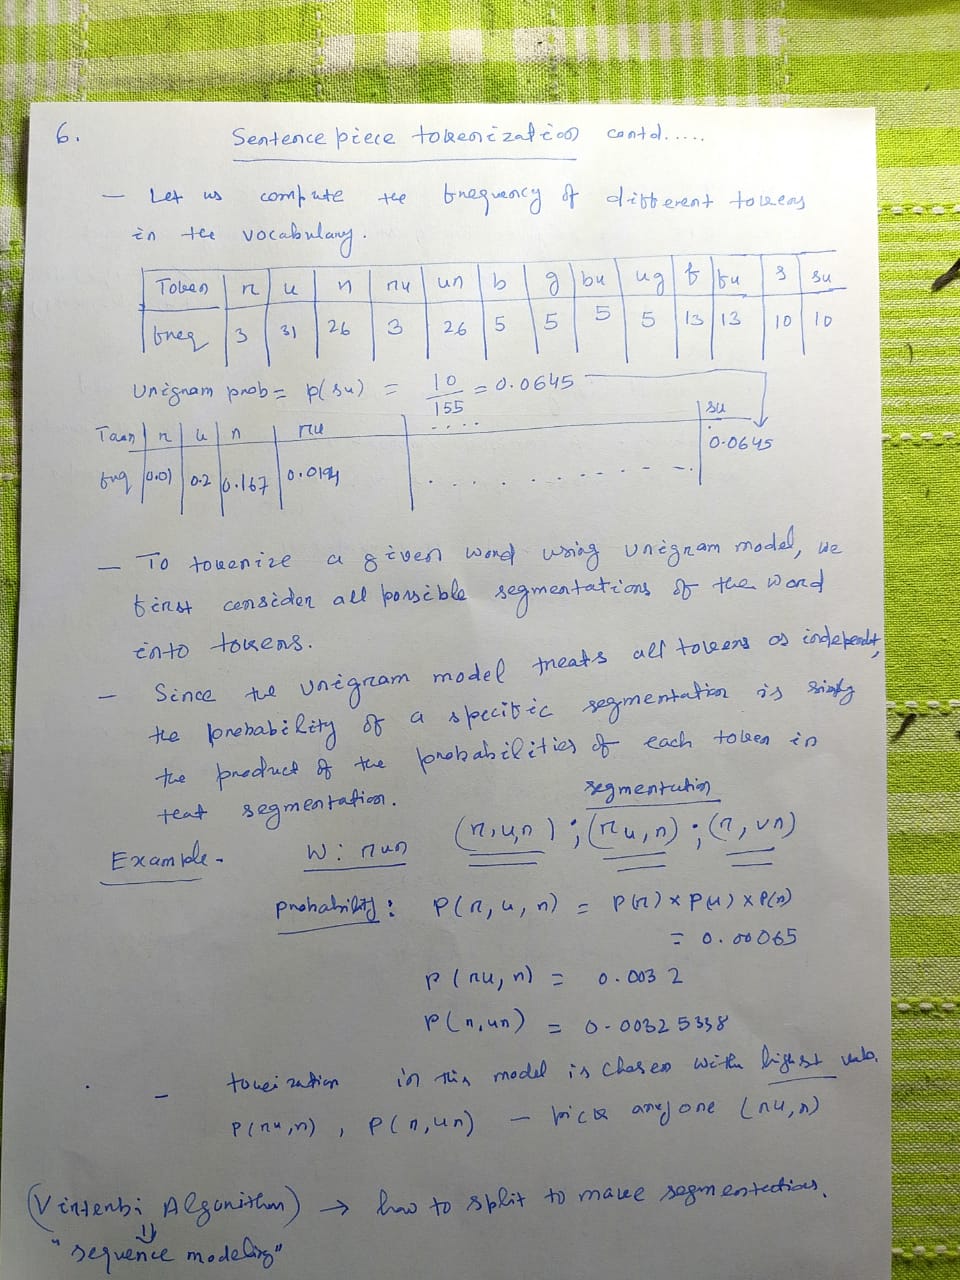 6.
Sentence piece tokenization contd.....
— Let us compute the frequency of different tokens
in the vocabulary.
Token r u n ru un b g bu ug f fu s su
freq 3 31 26 3 26 5 5 5 5 13 13 10 10
Unigram prob = p(su) = 10/155 = 0.0645
Token r u n ru .... su
freq 0.01 0.2 0.167 0.0194 . . . . . . . . 0.0645
— To tokenize a given word using unigram model, we
first consider all possible segmentations of the word
into tokens.
— Since the unigram model treats all tokens as independent,
the probability of a specific segmentation is simply
the product of the probabilities of each token in
that segmentation.
segmentation
Example - W: run (r,u,n) ; (ru,n) ; (r, un)
probability: P(r, u, n) = P(r) x P(u) x P(n)
= 0.00065
P(ru, n) = 0.0032
P(r,un) = 0.00325338
— tokeization in this model is chosen with highest
P(ru,n) , P(r,un) — pick any one (ru,n)
(Viterbi Algorithm) → how to split to make segmentations.
⇓
"sequence modeling"